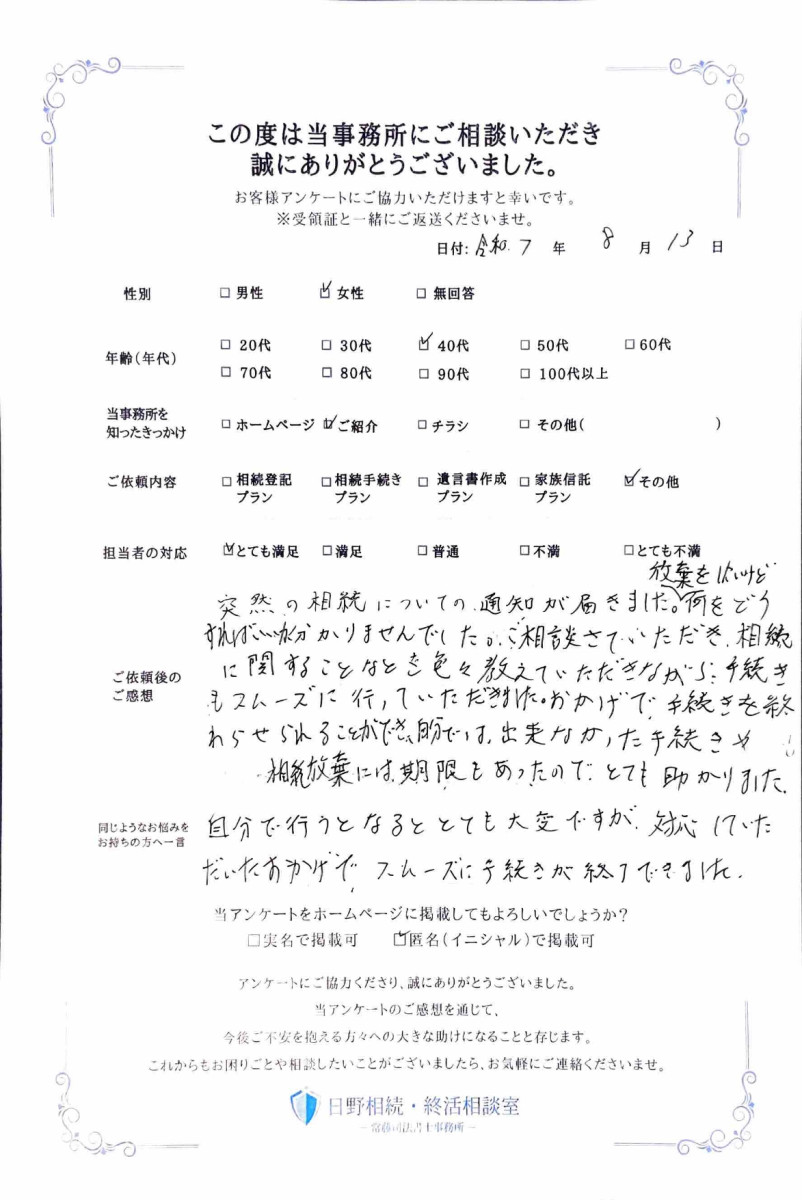 この度は当事務所にご相談いただき
誠にありがとうございました。
お客様アンケートにご協力いただけますと幸いです。
※受領証と一緒にご返送くださいませ。
日付: 令和 7 年 8 月 13 日
性別 □ 男性 ☑ 女性 □ 無回答
年齢(年代) □ 20代 □ 30代 ☑ 40代 □ 50代 □ 60代
□ 70代 □ 80代 □ 90代 □ 100代以上
当事務所を
知ったきっかけ □ ホームページ ☑ ご紹介 □ チラシ □ その他( )
ご依頼内容 □ 相続登記プラン □ 相続手続きプラン □ 遺言書作成プラン □ 家族信託プラン ☑ その他
担当者の対応 ☑ とても満足 □ 満足 □ 普通 □ 不満 □ とても不満
ご依頼後の
ご感想
放棄をしたいけど
突然の相続についての通知が届きました。何をどう
すればいいか分かりませんでした。ご相談させていただき、相続
に関することなどを色々教えていただきながら、手続き
もスムーズに行っていただきました。おかげで、手続きを終
わらせられることができ、自分では、出来なかった手続きや
相続放棄には、期限もあったので、とても助かりました。
同じようなお悩みを
お持ちの方へ一言
自分で行うとなるととても大変ですが、対応していた
だいたおかげで、スムーズに手続きが終了できました。
当アンケートをホームページに掲載してもよろしいでしょうか?
□ 実名で掲載可 ☑ 匿名(イニシャル)で掲載可
アンケートにご協力くださり、誠にありがとうございました。
当アンケートのご感想を通じて、
今後ご不安を抱える方々への大きな助けになることと存じます。
これからもお困りごとや相談したいことがございましたら、お気軽にご連絡くださいませ。
日野相続・終活相談室
司法書士事務所